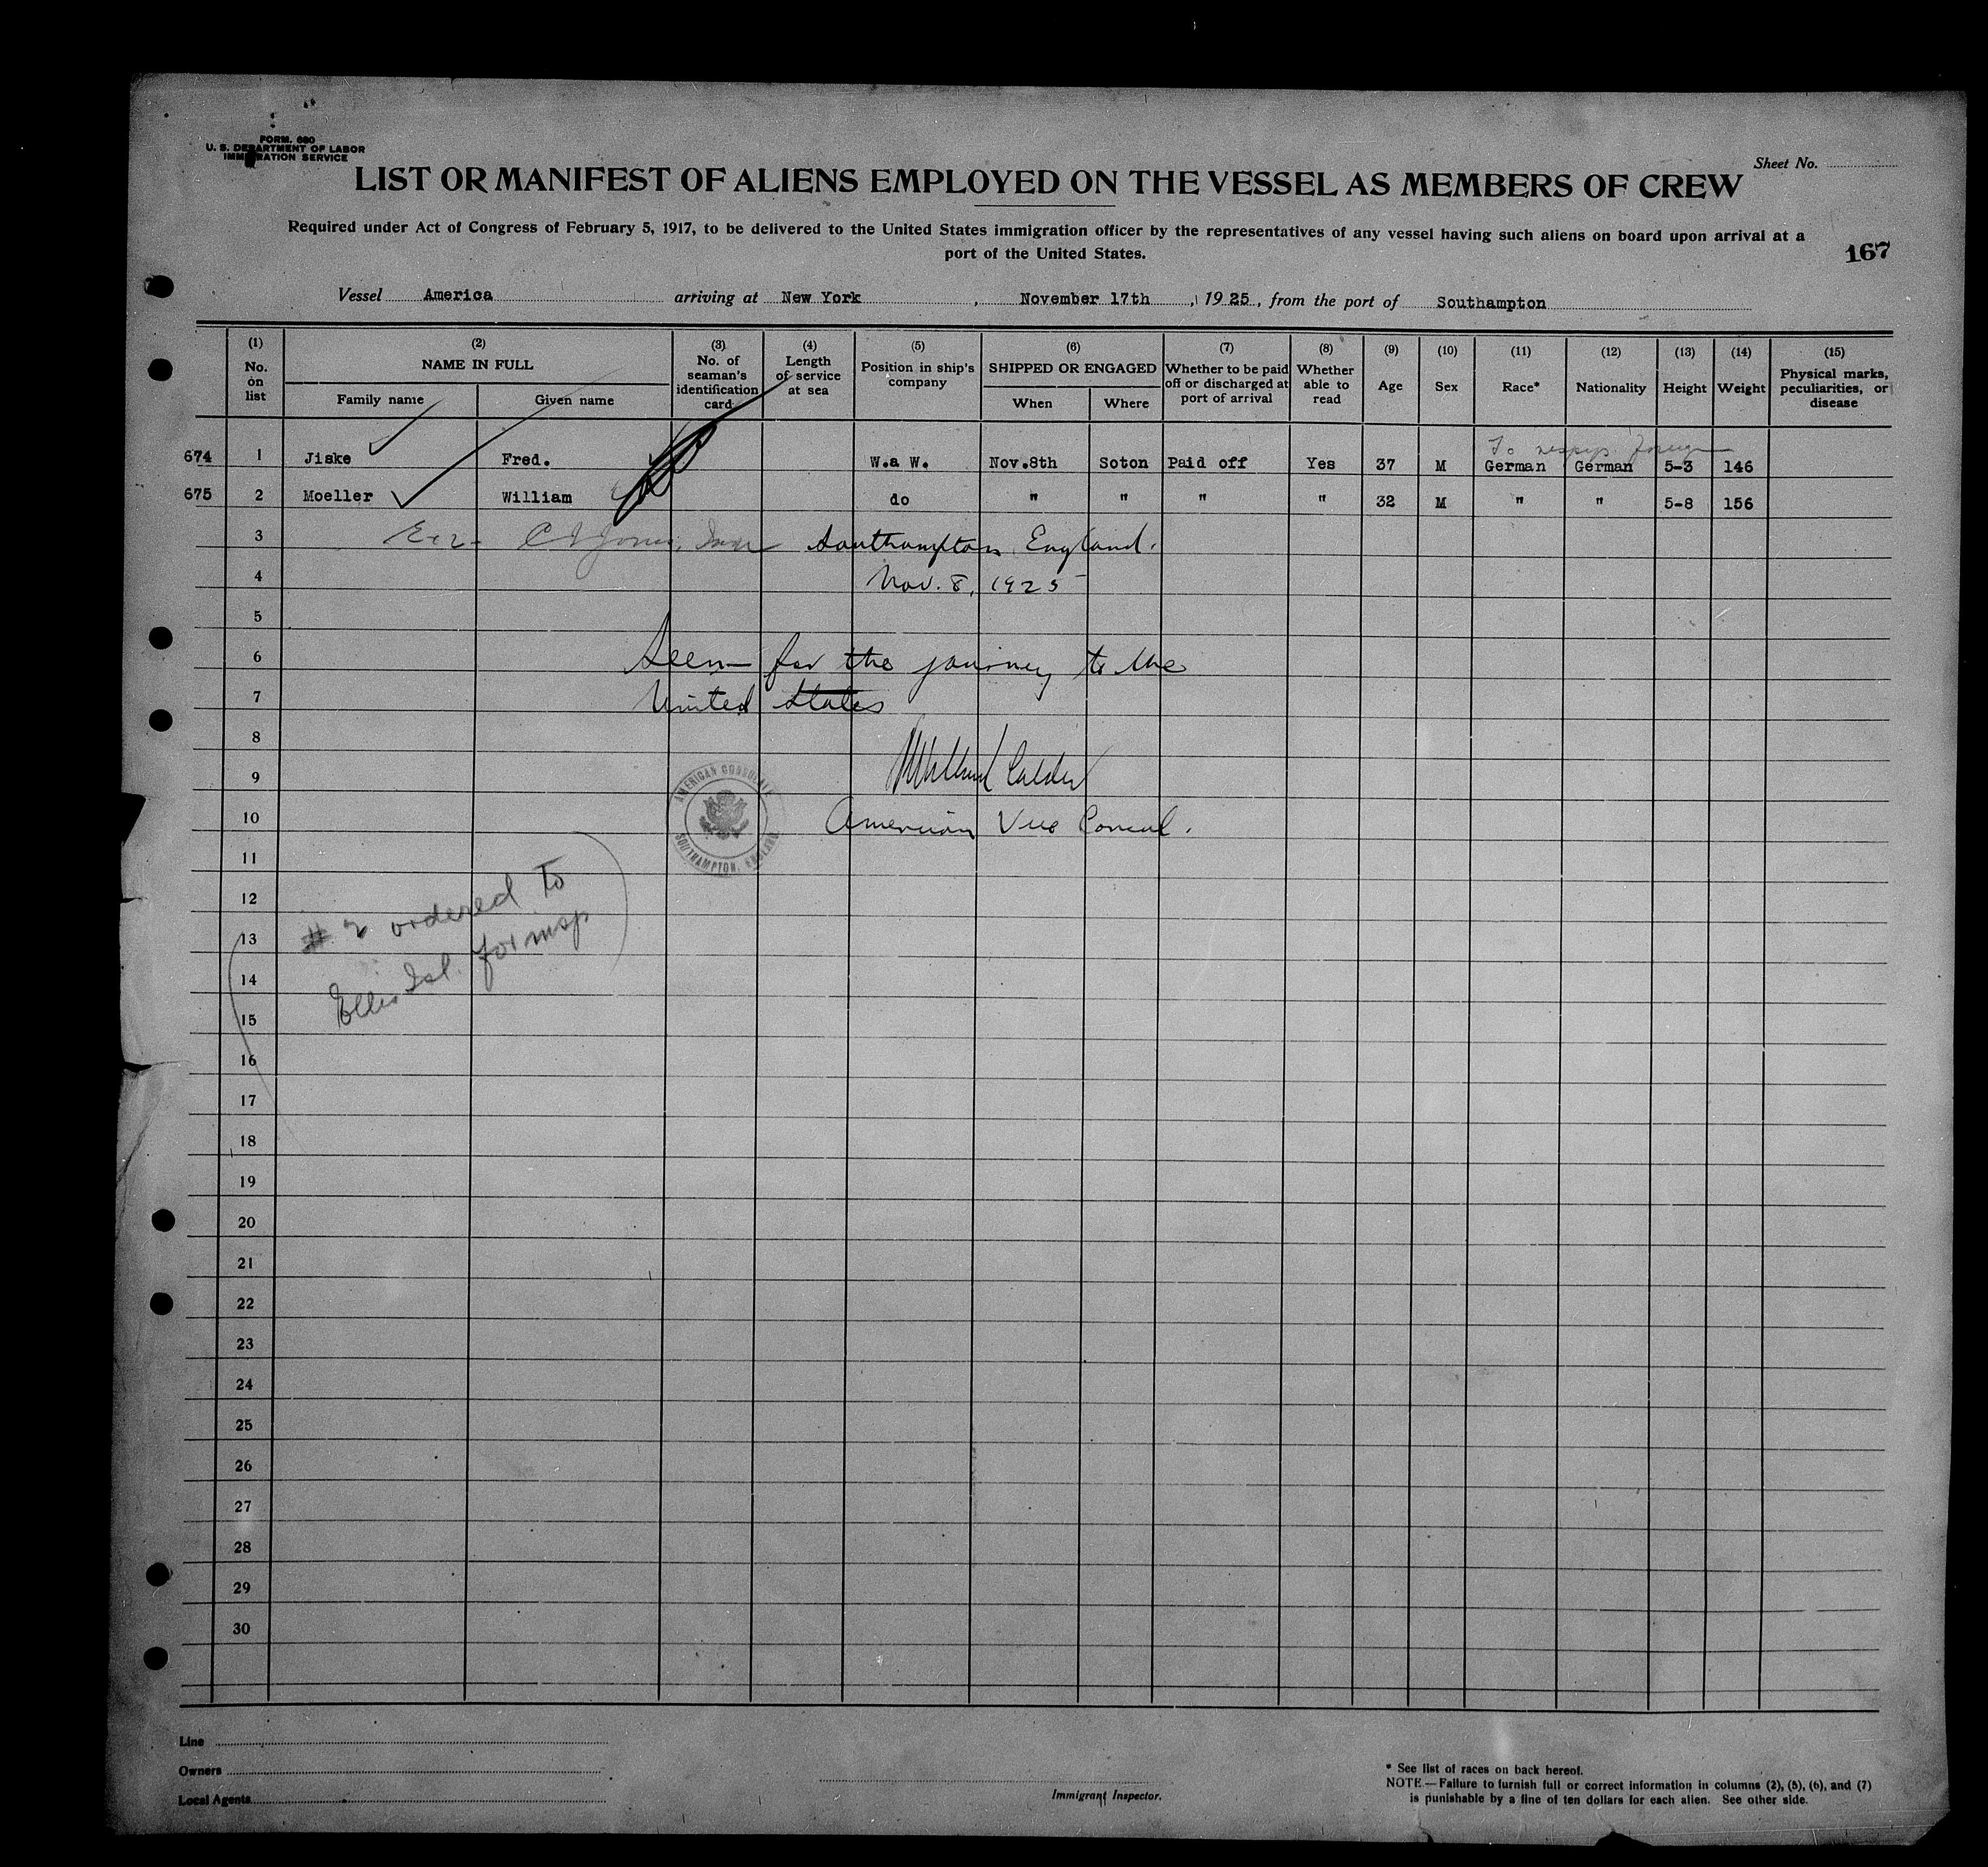 FORM. 680
U. S. DEPARTMENT OF LABOR
IMMIGRATION SERVICE
Sheet No.
LIST OR MANIFEST OF ALIENS EMPLOYED ON THE VESSEL AS MEMBERS OF CREW
Required under Act of Congress of February 5, 1917, to be delivered to the United States immigration officer by the representatives of any vessel having such aliens on board upon arrival at a
port of the United States.
167
Vessel America arriving at New York, November 17th, 1925, from the port of Southampton
(1) No. on list
(2) NAME IN FULL
Family name
Given name
(3) No. of seaman's identification card
(4) Length of service at sea
(5) Position in ship's company
(6) SHIPPED OR ENGAGED
When
Where
(7) Whether to be paid off or discharged at port of arrival
(8) Whether able to read
(9) Age
(10) Sex
(11) Race*
(12) Nationality
(13) Height
(14) Weight
(15) Physical marks, peculiarities, or disease
To foreign
674 1 Jiske Fred. W.a W. Nov.8th Soton Paid off Yes 37 M German German 5-3 146
675 2 Moeller William do " " " " 32 M " " 5-8 156
3 Jones Southampton, England.
4 Nov. 8, 1925
5
6 Seen for the journey to the
7 United States
8
9 Calder
10 American Vice Consul.
AMERICAN CONSULATE
SOUTHAMPTON, ENGLAND
11
12 # 2 ordered to
13 Ellis Isl. for insp
14
15
16
17
18
19
20
21
22
23
24
25
26
27
28
29
30
Line
Owners
Local Agents
Immigrant Inspector.
* See list of races on back hereof.
NOTE.—Failure to furnish full or correct information in columns (2), (5), (6), and (7)
is punishable by a fine of ten dollars for each alien. See other side.